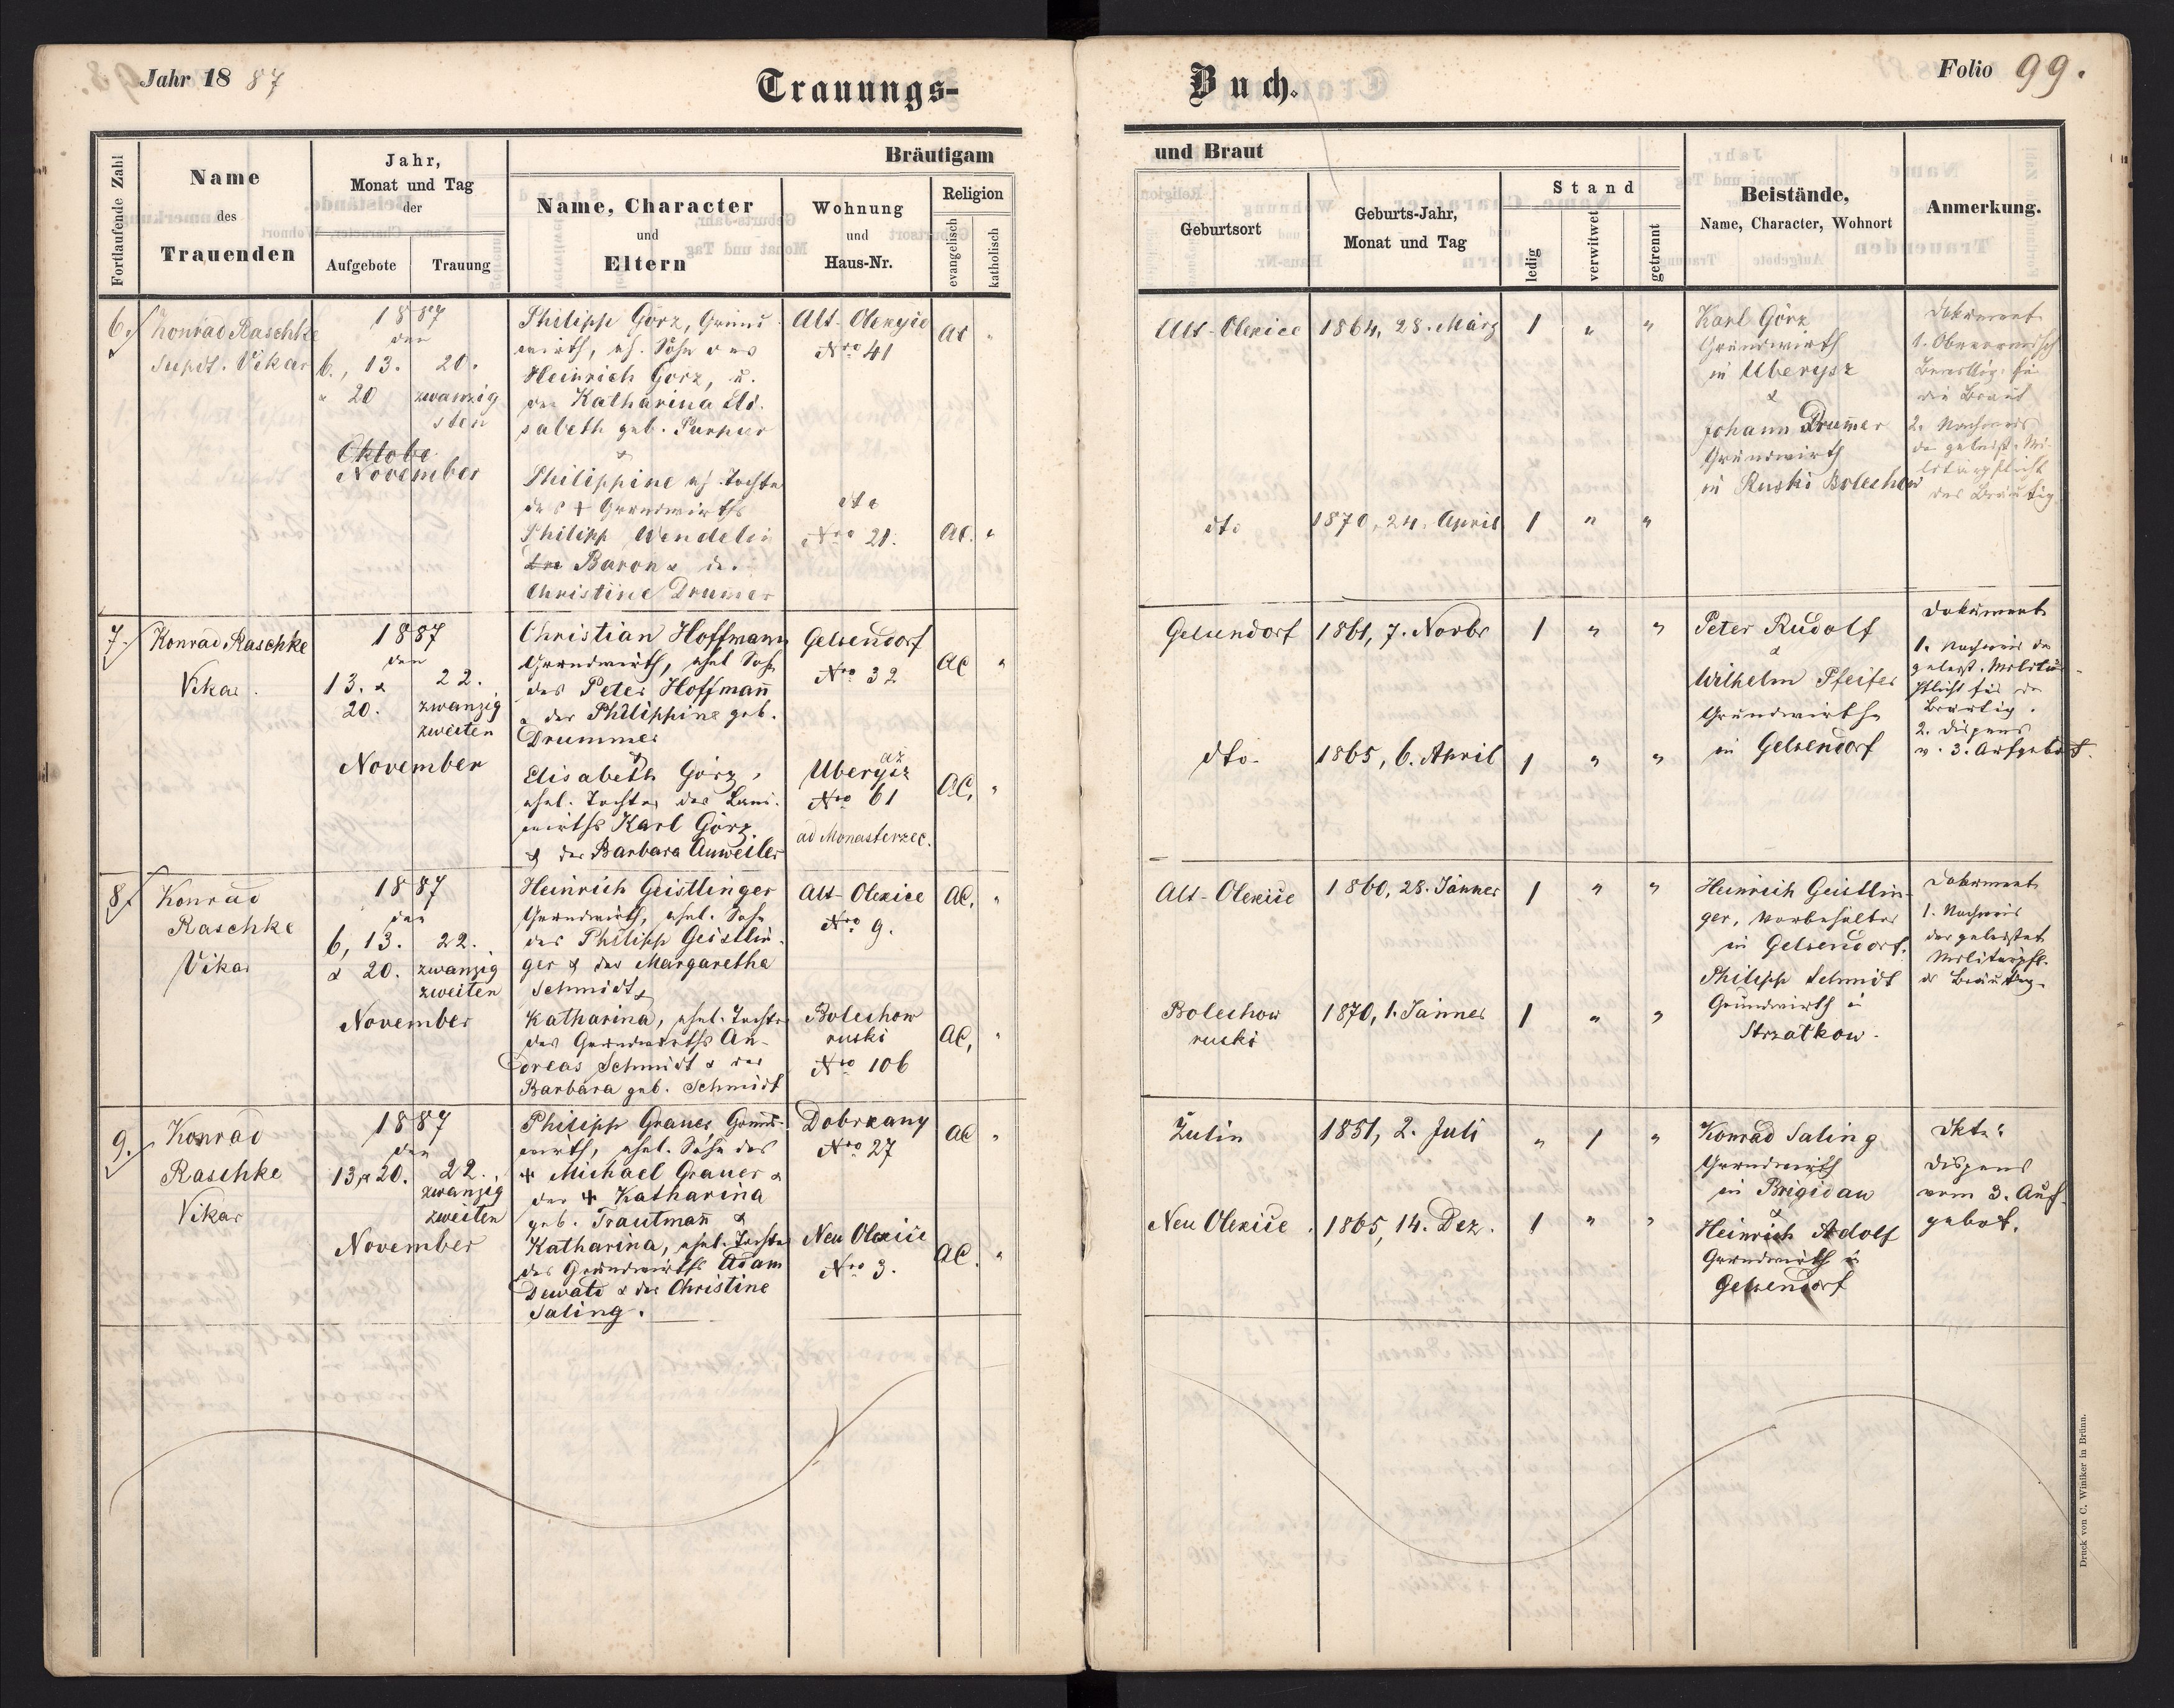 Jahr 1887
Trauungs-
Buch.
Folio 99.
Fortlaufende Zahl
Name
des
Trauenden
Jahr,
Monat und Tag
der
Aufgebote
Trauung
Bräutigam
Name, Character
und
Eltern
Wohnung
und
Haus-Nr.
Religion
evangelisch
katholisch
und Braut
Geburtsort
Geburts-Jahr,
Monat und Tag
Stand
ledig
verwitwet
getrennt
Beistände,
Name, Character, Wohnort
Anmerkung.
6.
Konrad Raschke
Supdt. Vikar
1887
den
6., 13. 20.
& 20 zwanzig
sten
Oktobe
November
Philipp Görz, Grund
wirth, eh. Sohn des
Heinrich Görz, u.
der Katharina Eli
sabeth geb.
&
Philippine eh. Tochter
des + Grundwirths
Philipp Wendelin
Baron & der
Christine Drumer
Alt-Olexice
Nro 41
dto
Nro 21.
AC "
AC. "
Alt-Olexice
1864, 28. März
1 " "
dto
1870, 24. April
1 " "
Karl Görz
Grundwirth
in Uberysz
&
Johann Drumer
Grundwirth
in Ruski Bolechow
Dokument
die Braut
2. Nachweis
der geleist. Mi-
litärpflicht
des Bräutig.
7.
Konrad Raschke
Vikar.
1887
den
13. & 22.
20. zwanzig
zweiten
November
Christian Hoffmann
Grundwirth, ehel. Sohn
des Peter Hoffmann
& der Philippine geb.
Drummer
&
Elisabeth Görz,
ehel. Tochter des Land-
wirths Karl Görz
& der Barbara Auweiler
Gelsendorf
Nro 32
Uberysz
Nro 61
ad Monasterzec.
AC "
AC, "
Gelsendorf
1861, 7. Novbr
1 " "
dto.
1865, 6. April
1 " "
Peter Rudolf
&
Wilhelm Pfeifer
Grundwirthe
in Gelsendorf
Dokument
1. Nachweis der
geleist. Militär-
pflicht für den
Bräutig.
2. Dispens
v. 3. Aufgebot.
8.
Konrad
Raschke
Vikar
1887
den
6, 13. 22.
& 20. zwanzig
zweiten
November
Heinrich Geistlinger
Grundwirth, ehel. Sohn
des Philipp Geistlin-
ger & der Margaretha
Schmidt &
Katharina, ehel. Tochter
des Grundwirths An-
dreas Schmidt & der
Barbara geb. Schmidt
Alt-Olexice
Nro 9.
Bolechow
ruski
Nro 106
AC. "
AC, "
Alt-Olexice
1860, 28. Jänner
1 " "
Bolechow
ruski
1870, 1. Jänner
1 " "
Heinrich Geistlin-
ger, Vorbehalter
in Gelsendorf.
Philipp Schmidt
Grundwirth in
Strzalkow.
Dokument
1. Nachweis
der geleistet
Militärpfl.
d. Bräutig.
9.
Konrad
Raschke
Vikar
1887
den
13, & 20. 22.
zwanzig
zweiten
November
Philipp Grauer Grund-
wirth, ehel. Sohn des
+ Michael Grauer &
der + Katharina
geb. Trautmann &
Katharina, ehel. Tochter
des Grundwirths Adam
Dewald & der Christine
Saling.
Dobrzany
Nro 27
Neu Olexice
Nro 3.
AC "
AC. "
Zulin
1851, 2. Juli
" 1 "
Neu Olexice.
1865, 14. Dez.
1 " "
Konrad Saling
Grundwirth
in Brigidau
&
Heinrich Adolf
Grundwirth in
Gelsendorf
Dkte:
Dispens
vom 3. Auf-
gebot.
Druck von C. Winiker in Brünn.